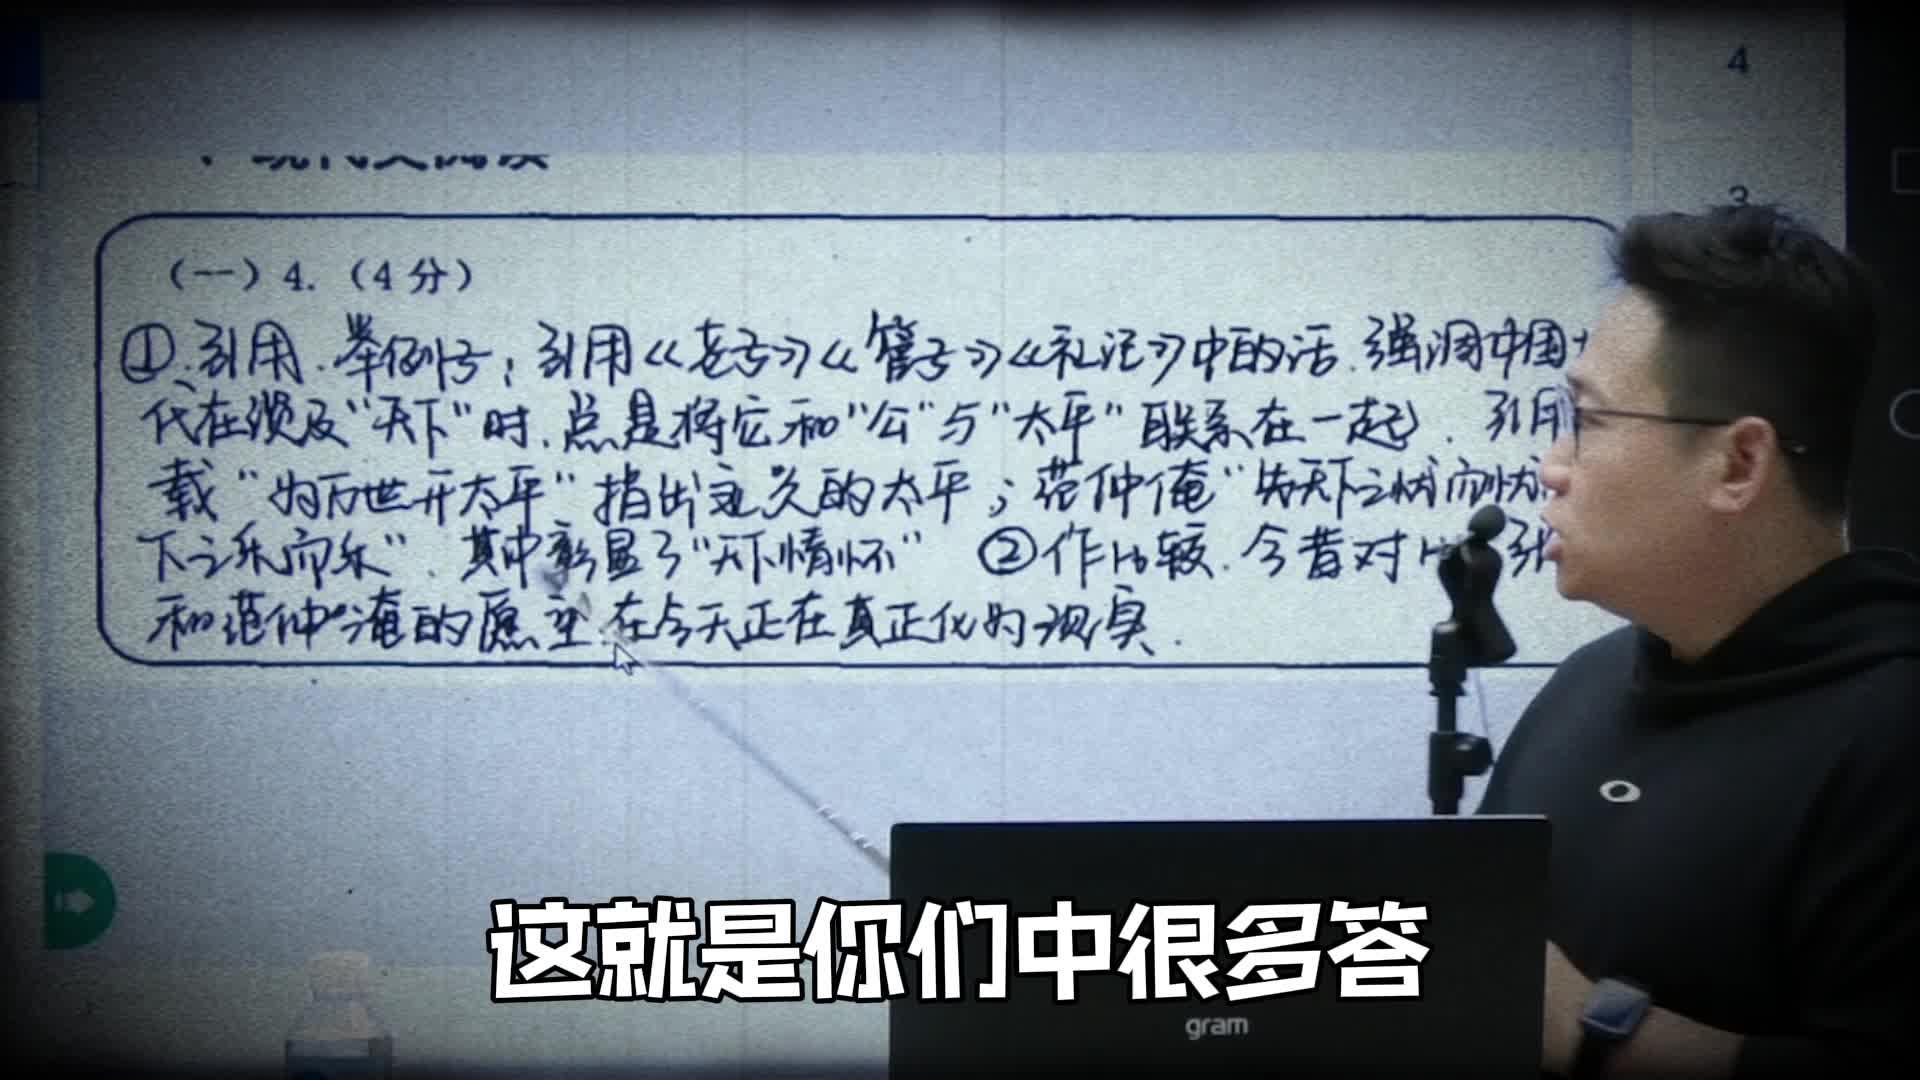 4
3
(一)4.(4分)
①.引用.举例子:引用《老子》《管子》《礼记》中的话.强调中国
代在谈及"天下"时.总是将它和"公"与"太平"联系在一起.引用
载"为万世开太平"指出永久的太平;范仲俺"先天下之忧而忧
下之乐而乐".其中彰显了"天下情怀" ②作比较.今昔对
和范仲淹的愿望.在今天正在真正化为现实.
这就是你们中很多答
gram